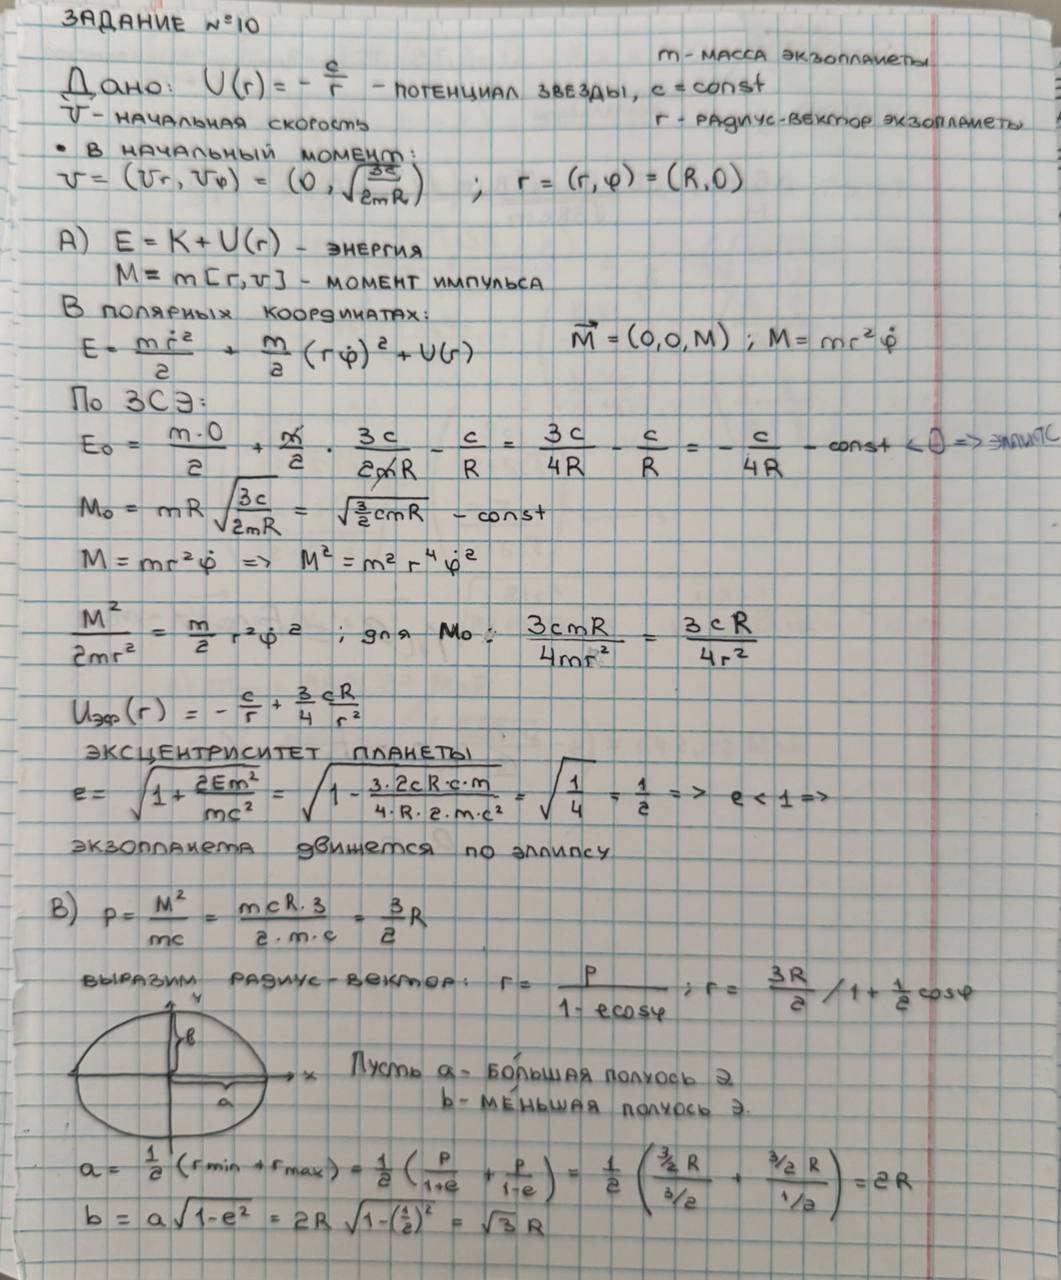 ЗАДАНИЕ №10
m - МАССА ЭКЗОПЛАНЕТЫ
Дано: U(r) = - c/r - ПОТЕНЦИАЛ ЗВЕЗДЫ, c = const
v - НАЧАЛЬНАЯ СКОРОСТЬ
r - РАДИУС-ВЕКТОР ЭКЗОПЛАНЕТЫ
• В НАЧАЛЬНЫЙ МОМЕНТ:
v = (vr, vφ) = (0, √(3c/2mR)) ; r = (r, φ) = (R, 0)
А) E = K + U(r) - ЭНЕРГИЯ
M = m[r, v] - МОМЕНТ ИМПУЛЬСА
В ПОЛЯРНЫХ КООРДИНАТАХ:
E = mṙ²/2 + m/2 (rφ̇)² + U(r) M⃗ = (0,0,M) ; M = mr²φ̇
По ЗСЭ:
E₀ = m·0/2 + m/2 · 3c/2mR - c/R = 3c/4R - c/R = - c/4R - const < 0 => ЭЛЛИПС
M₀ = mR √(3c/2mR) = √(3/2 cmR) - const
M = mr²φ̇ => M² = m² r⁴ φ̇²
M²/2mr² = m/2 r²φ̇² ; для M₀ : 3cmR/4mr² = 3cR/4r²
Uэф(r) = - c/r + 3/4 cR/r²
ЭКСЦЕНТРИСИТЕТ ПЛАНЕТЫ
e = √(1 + 2Em²/mc²) = √(1 - 3·2cR·c·m/4·R·2·m·c²) = √(1/4) = 1/2 => e < 1 =>
ЭКЗОПЛАНЕТА ДВИЖЕТСЯ ПО ЭЛЛИПСУ
В) p = M²/mc = mcR·3/2·m·c = 3/2 R
ВЫРАЗИМ РАДИУС-ВЕКТОР: r = p/1 - ecosφ ; r = 3R/2 / 1 + 1/2 cosφ
y
b
x
a
Пусть a - БО́ЛЬШАЯ ПОЛУОСЬ Э.
b - МЕ́НЬШАЯ ПОЛУОСЬ Э.
a = 1/2 (rmin + rmax) = 1/2 (p/1+e + p/1-e) = 1/2 (3/2 R/3/2 + 3/2 R/1/2) = 2R
b = a√(1-e²) = 2R √(1-(1/2)²) = √3 R